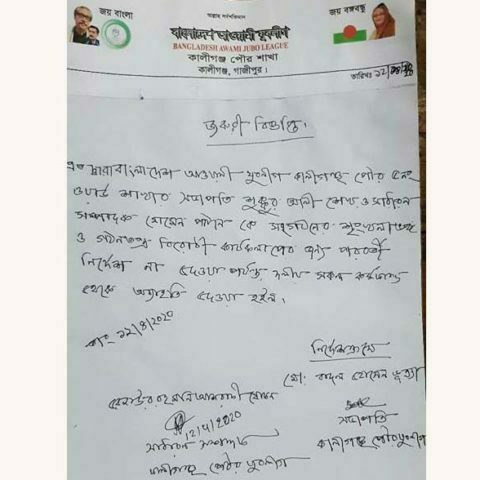 জয় বাংলা
আল্লাহ সর্বশক্তিমান
জয় বঙ্গবন্ধু
বাংলাদেশ আওয়ামী যুবলীগ
BANGLADESH AWAMI JUBO LEAGUE
কালীগঞ্জ পৌর শাখা
কালীগঞ্জ, গাজীপুর।
তারিখঃ ১২/
জরুরী বিজ্ঞপ্তি।
এত দ্বারা বাংলাদেশ আওয়ামী যুবলীগ কালীগঞ্জ পৌর ৫নং
ওয়ার্ড শাখার সভাপতি শুক্কুর আলী শেখ ও সাধারন
সম্পাদক হোসেন পাঠান কে সংগঠনের শৃংখলা ভঙ্গ
ও গঠনতন্ত্র বিরোধী কার্যকলাপের জন্য পরবর্তী
নির্দেশ না দেওয়া পর্যন্ত দলীয় সকল কর্মকান্ড
থেকে অব্যাহতি দেওয়া হইল।
তাং ১২/৪/২০২০
নির্দেশক্রমে
মো: বাদল হোসেন ভূইয়া
রেজাউর রহমান আশরাফী খোকন
সভাপতি
12/4/2020
কালীগঞ্জ পৌর যুবলীগ
সাধারন সম্পাদক
কালীগঞ্জ পৌর যুবলীগ